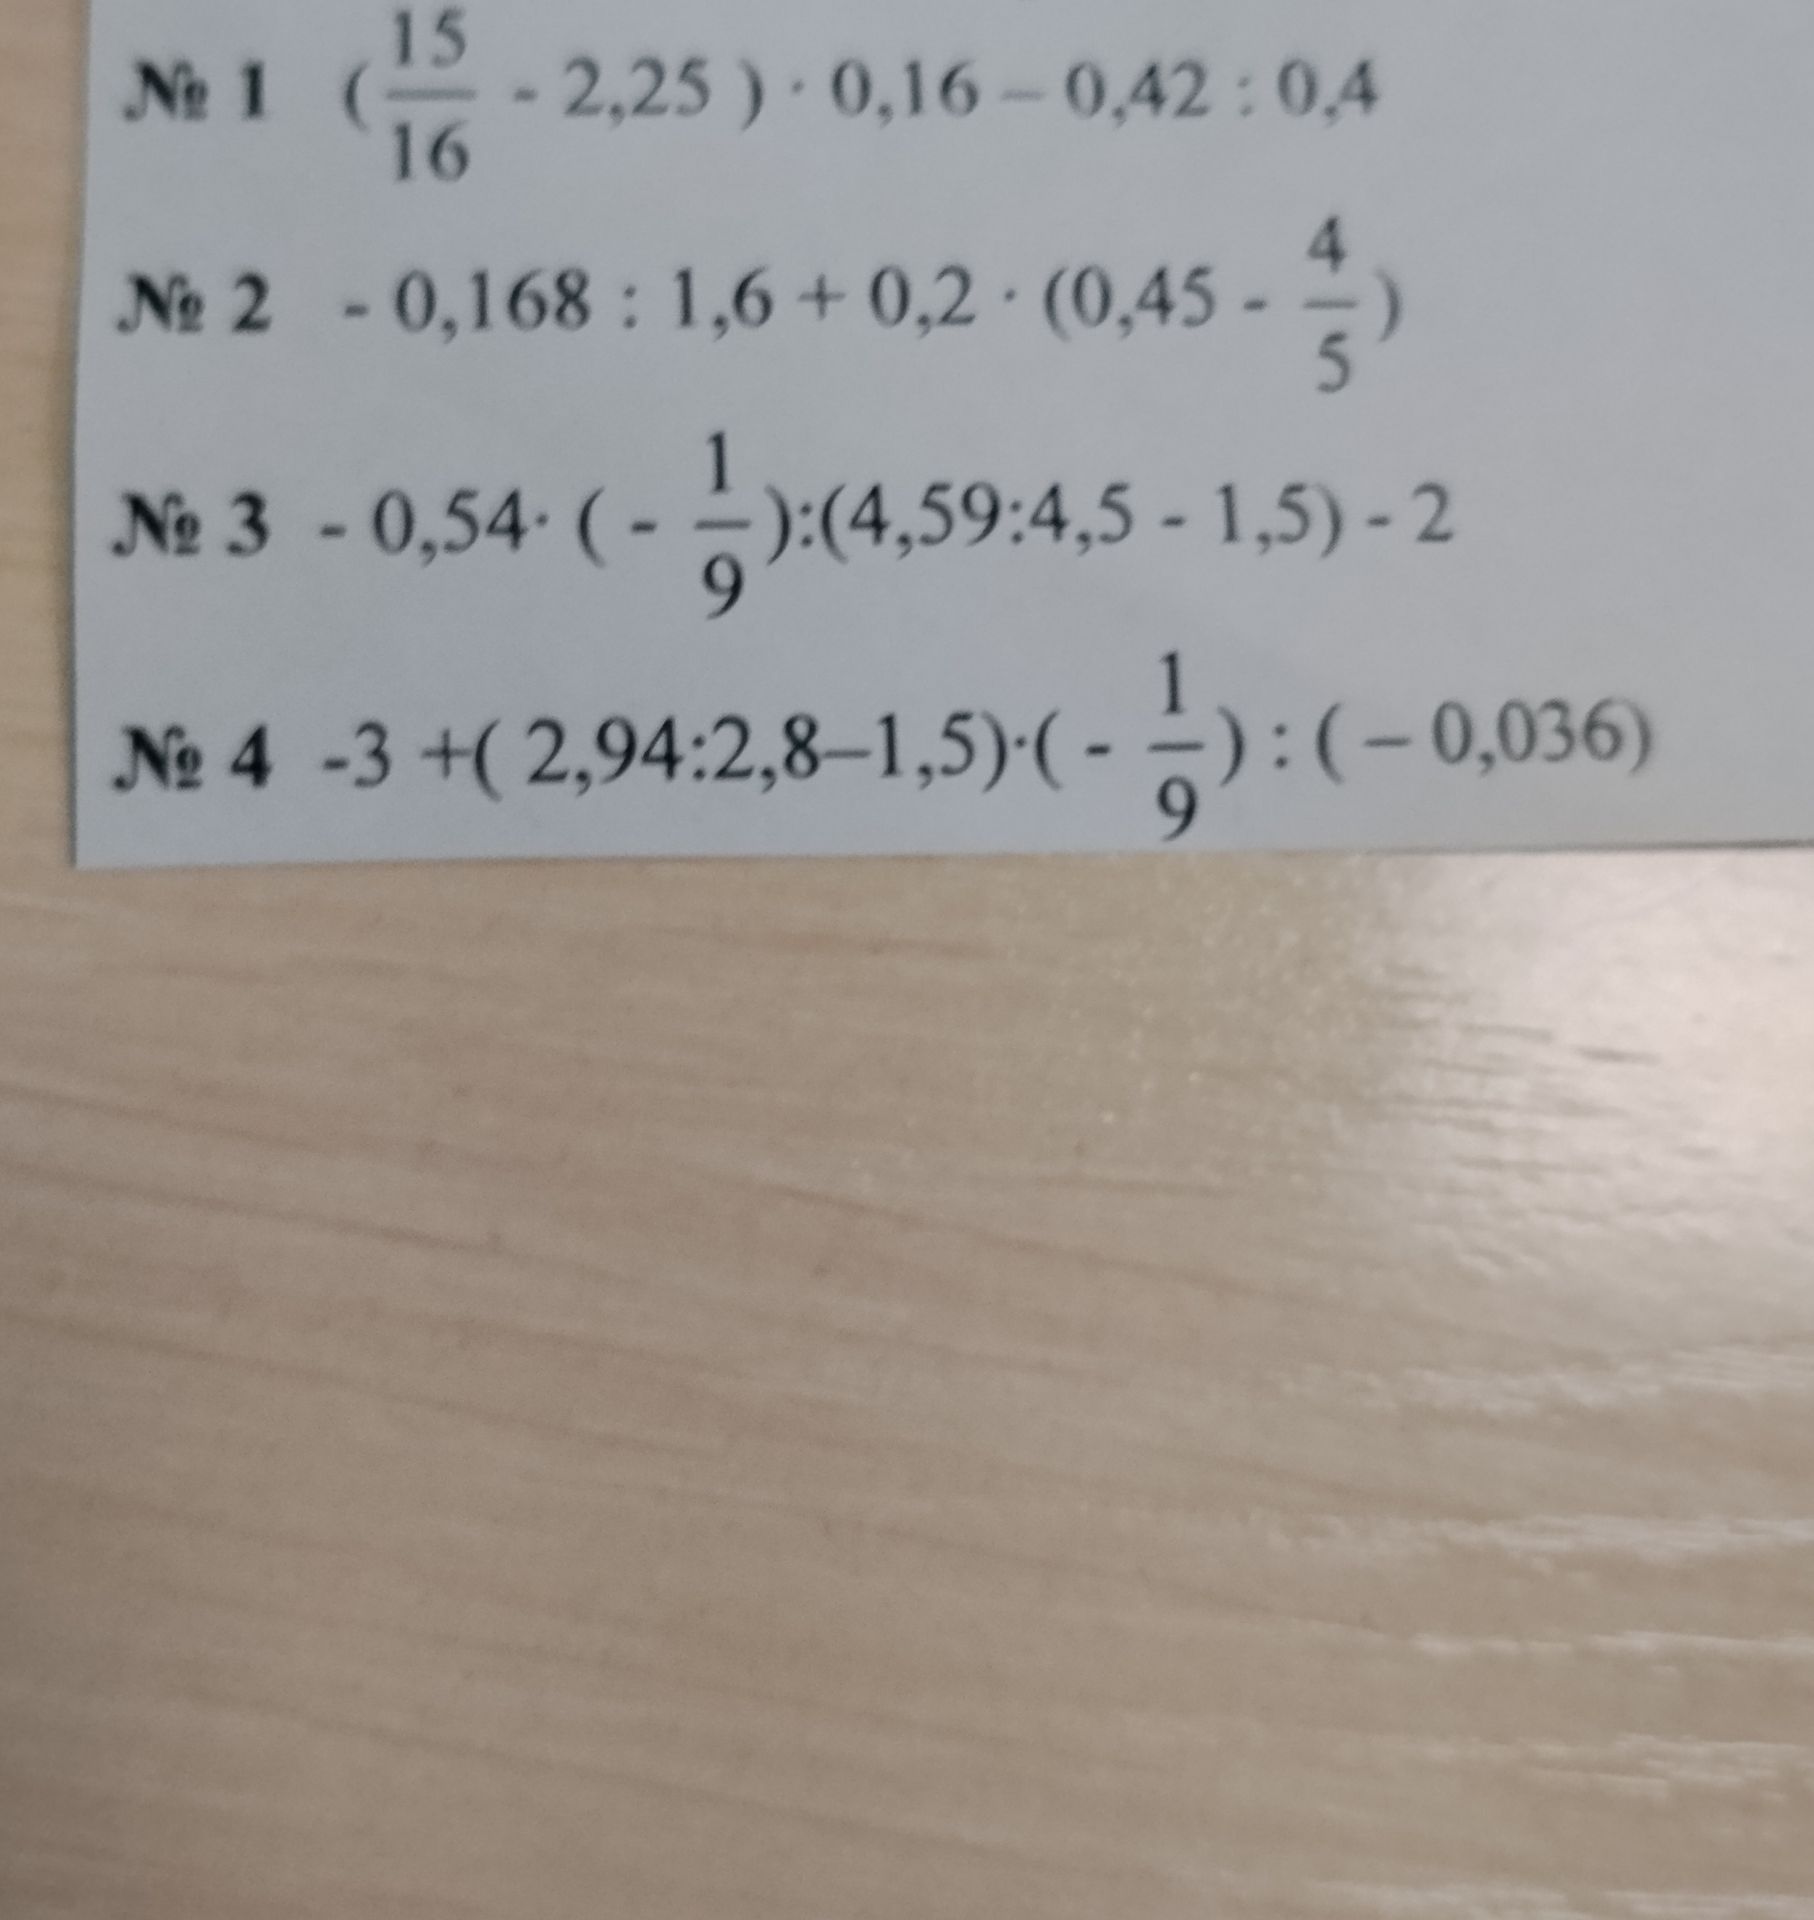 № 1 (15/16 - 2,25 ) · 0,16 – 0,42 : 0,4
№ 2 - 0,168 : 1,6 + 0,2 · (0,45 - 4/5)
№ 3 - 0,54· ( - 1/9):(4,59:4,5 - 1,5) - 2
№ 4 -3 +( 2,94:2,8–1,5)·( - 1/9) : ( – 0,036)